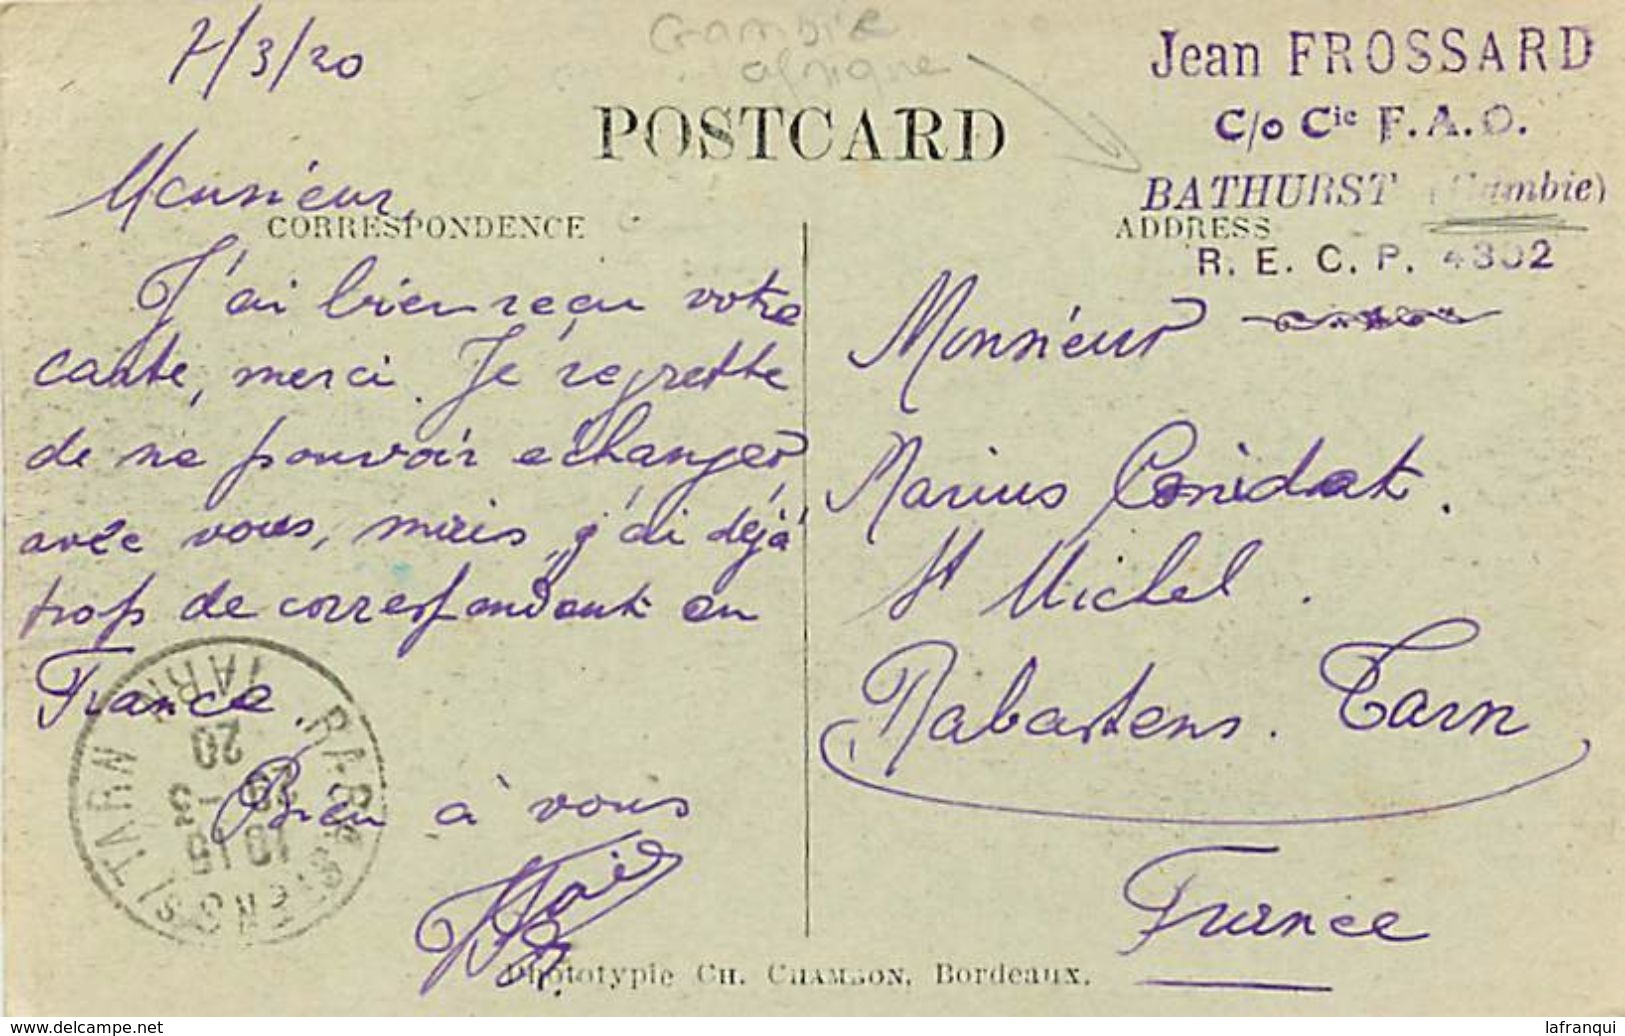 7/3/20
Gambie
afrique
Jean FROSSARD
C/o Cie F.A.O.
BATHURST (Gambie)
R. E. C. P. 4302
POSTCARD
CORRESPONDENCE
ADDRESS
Monsieur,
J'ai bien reçu votre
carte, merci. Je regrette
de ne pouvoir échanger
avec vous, mais j'ai déjà
trop de correspondant en
France.
Bien à vous
Monsieur
Marius
St Michel.
Rabastens. Tarn
France
RABASTENS S/ TARN
TARN
1915
20
Phototypie CH. CHAMBON, Bordeaux.
www.delcampe.net
lafranqui